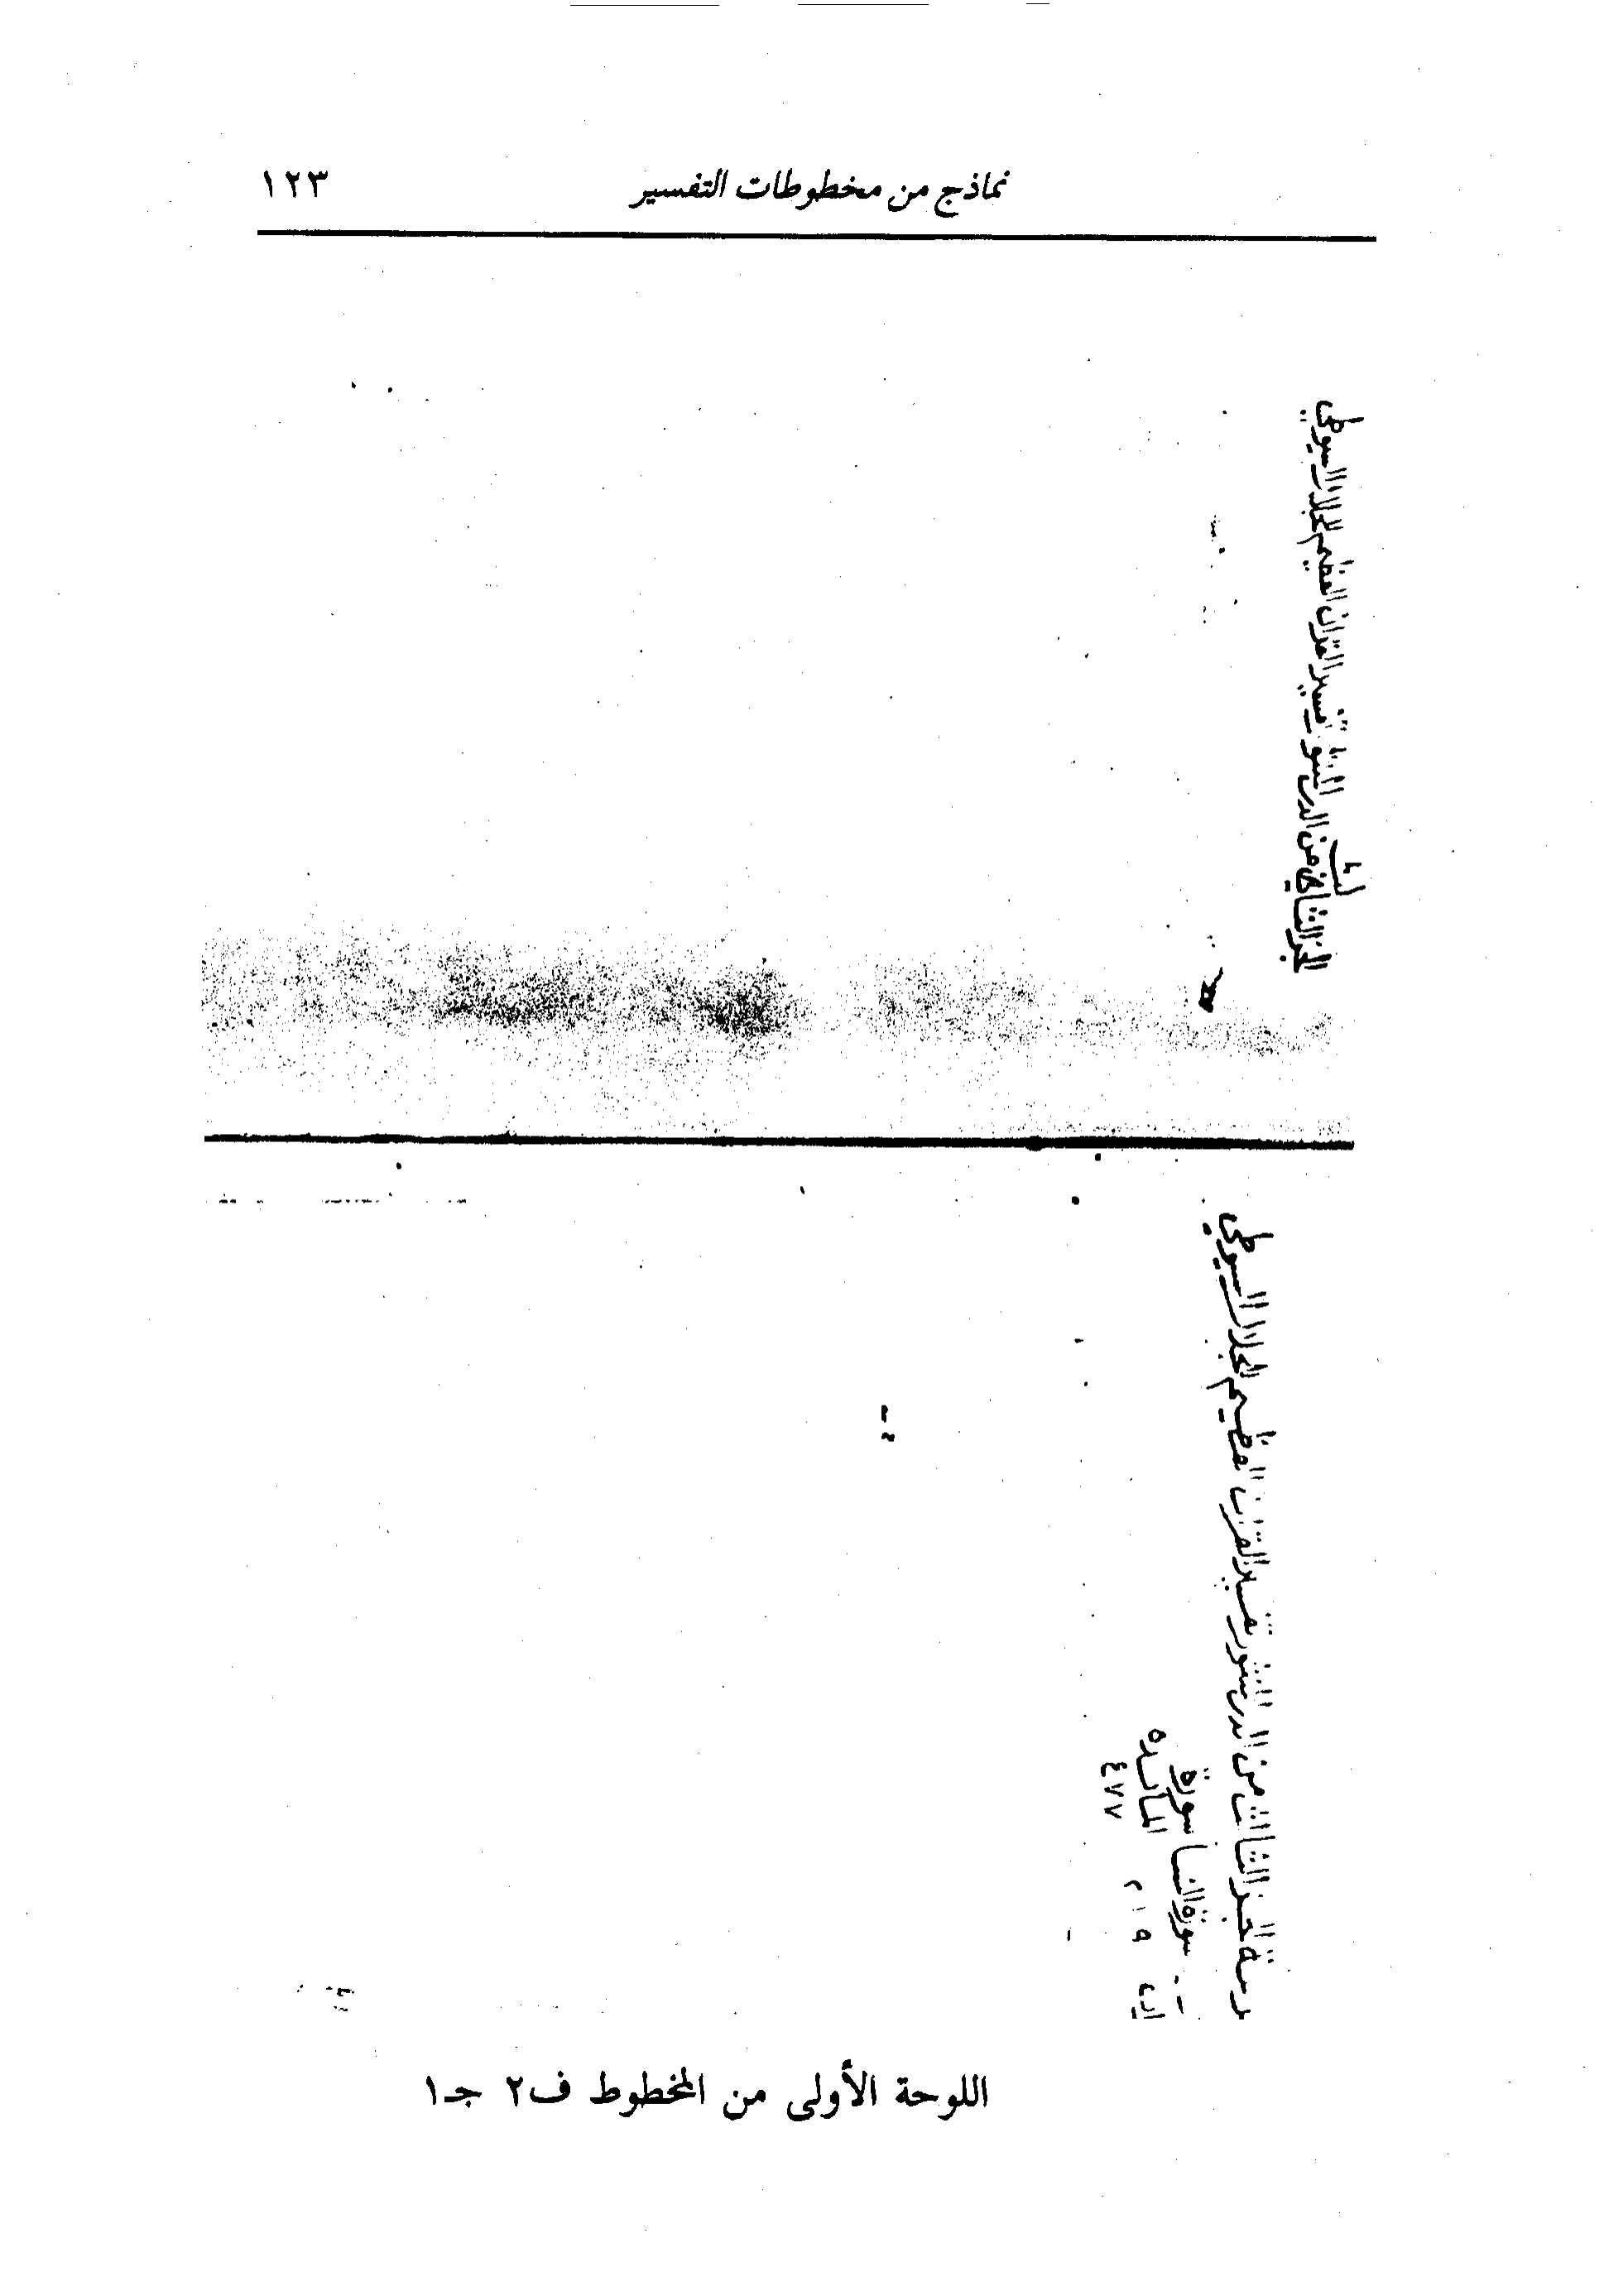 نماذج من مخطوطات التفسير ١٢٣
الجزء الثاني من الدر المنثور تفسير القران العظيم للجلال السيوطي
لث
الجزء الثالث من الدر المنثور تفسير القران العظيم للجلال السيوطي
سورة النسا سورة
المائده
٤٧٧
اللوحة الأولى من المخطوط ف٢ جـ١